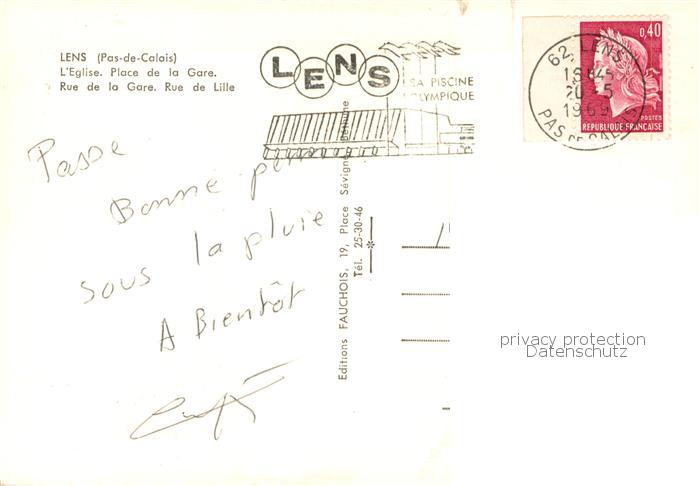 LENS (Pas-de-Calais)
L'Eglise. Place de la Gare.
Rue de la Gare. Rue de Lille
LENS
SA PISCINE
OLYMPIQUE
0,40
POSTES
REPUBLIQUE FRANÇAISE
62 LENS
15H45
20-5
1969
PAS DE CALAIS
Passe
Bonne
sous la pluie
A Bientôt
Editions FAUCHOIS, 19, Place Sévigné, Béthune
Tél. 25-30-46
privacy protection
Datenschutz